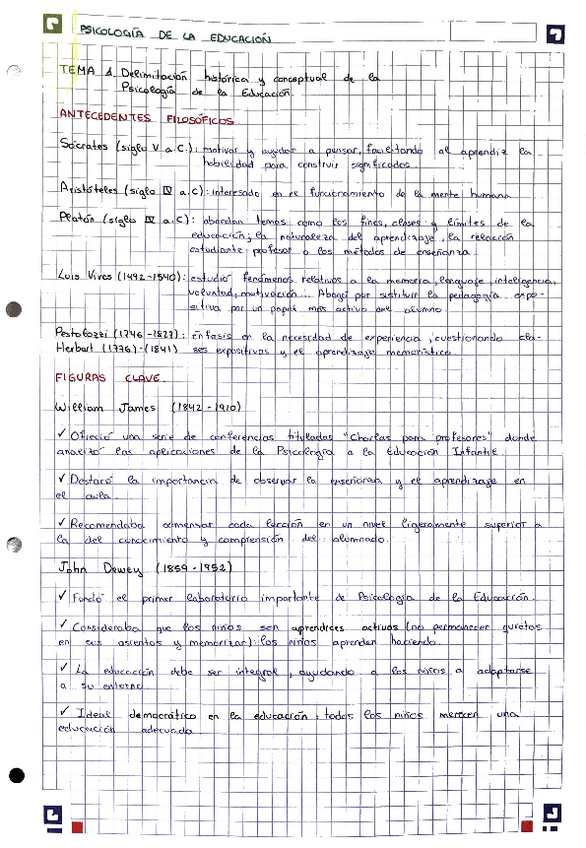 PSICOLOGÍA DE LA EDUCACIÓN
TEMA 1. Delimitación histórica y conceptual de la
Psicología de la Educación.
ANTECEDENTES FILOSÓFICOS
Sócrates (siglo V a.C.): motivar y ayudar a pensar, facilitando al aprendiz la
habilidad para construir significados.
Aristóteles (siglo IV a.C): interesado en el funcionamiento de la mente humana
Platón (siglo IV a.C): abordan temas como los fines, clases y límites de la
educación, la naturaleza del aprendizaje, la relación
estudiante-profesor o los métodos de enseñanza.
Luis Vives (1492-1540): estudió fenómenos relativos a la memoria, lenguaje, inteligencia,
voluntad, motivación... Abogó por sustituir la pedagogía expo-
sitiva por un papel más activo del alumno.
Pestalozzi (1746-1827): énfasis en la necesidad de experiencia, cuestionando cla-
Herbart (1776)-(1841) ses expositivas y el aprendizaje memorístico.
FIGURAS CLAVE.
William James (1842-1910)
✓ Ofreció una serie de conferencias tituladas "Charlas para profesores" donde
analizó las aplicaciones de la Psicología a la Educación Infantil
✓ Destacó la importancia de observar la enseñanza y el aprendizaje en
el aula.
✓ Recomendaba comenzar cada lección en un nivel ligeramente superior a
la del conocimiento y comprensión del alumnado.
John Dewey (1859-1952)
✓ Fundó el primer laboratorio importante de Psicología de la Educación.
✓ Consideraba que los niños son aprendices activos (no permanecer quietos
en sus asientos y memorizar): los niños aprenden haciendo.
✓ La educación debe ser integral, ayudando a los niños a adaptarse
a su entorno
✓ Ideal democrático en la educación: todos los niños merecen una
educación adecuada.